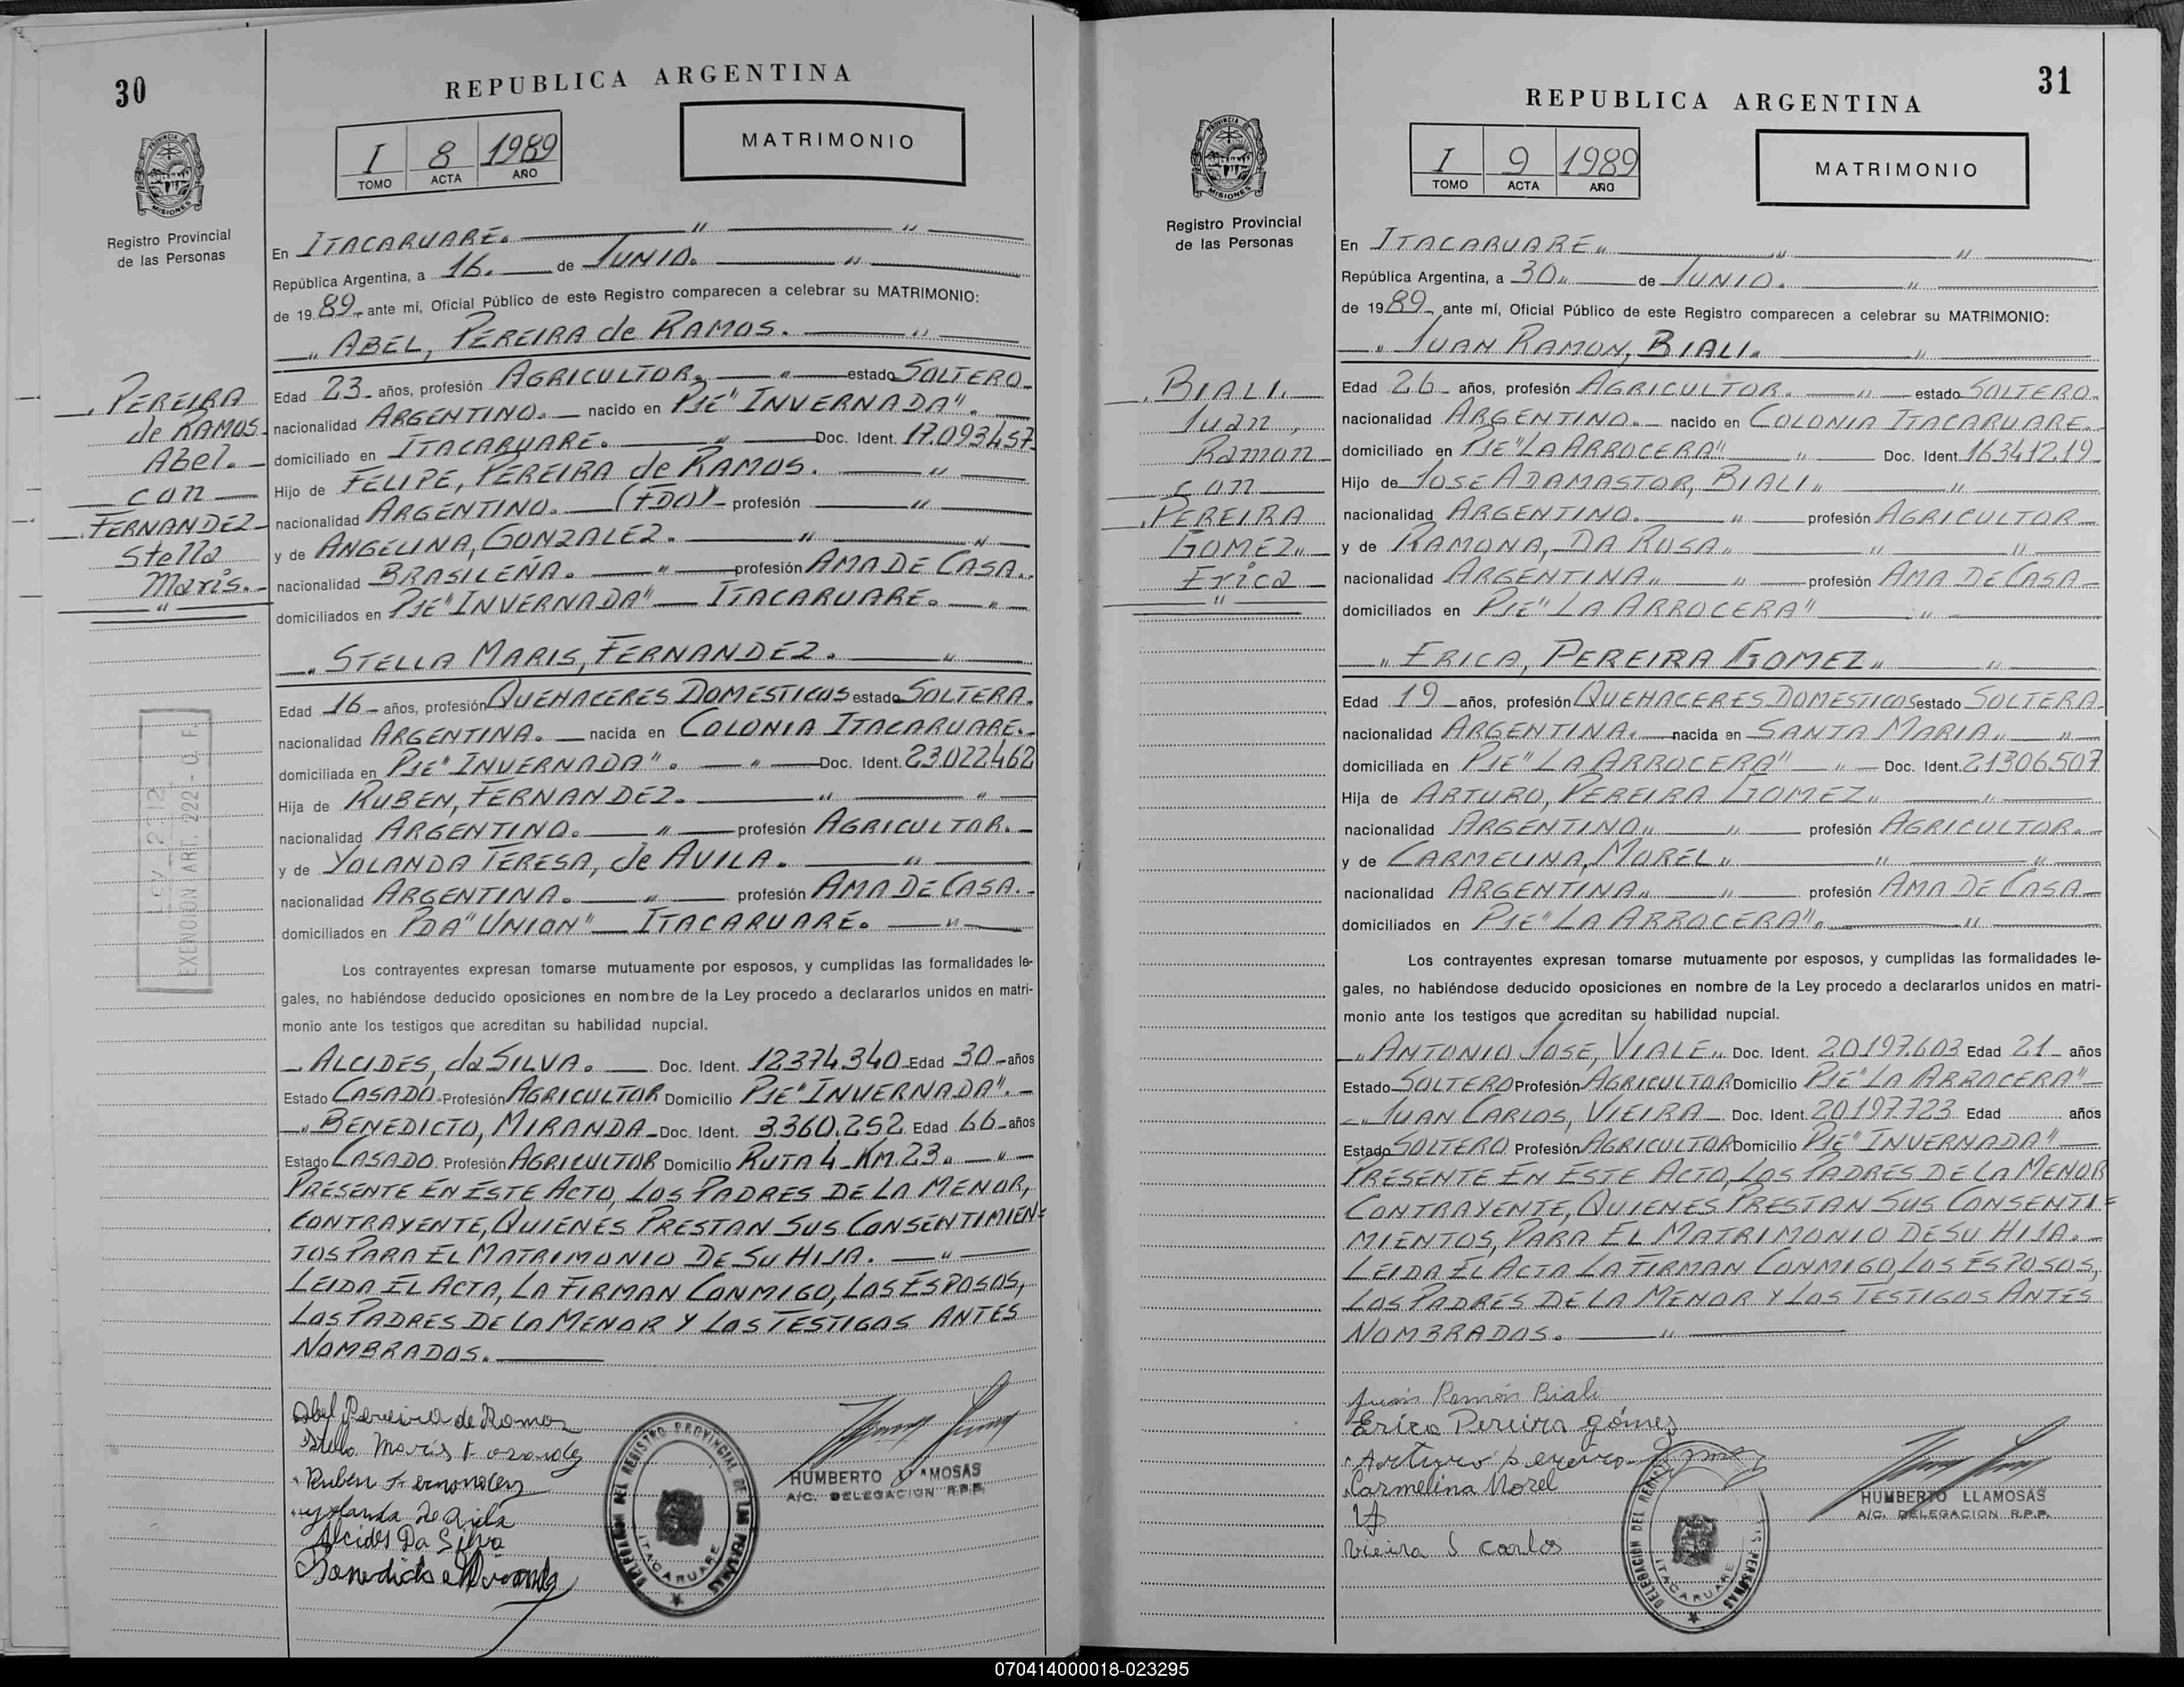 30
REPUBLICA ARGENTINA
I 8 1989
TOMO ACTA AÑO
MATRIMONIO
PROVINCIA DE
MISIONES
Registro Provincial
de las Personas
PEREIRA
de RAMOS
Abel.
con
FERNANDEZ
Stella
Maris.
LEY - 2212
EXENCION ART. 222 - C. F.
En ITACARUARE.
República Argentina, a 16. de JUNIO.
de 1989 ante mí, Oficial Público de este Registro comparecen a celebrar su MATRIMONIO:
ABEL, PEREIRA de RAMOS.
Edad 23 años, profesión AGRICULTOR. estado SOLTERO
nacionalidad ARGENTINO. nacido en PJE "INVERNADA".
domiciliado en ITACARUARE. Doc. Ident. 17.093457
Hijo de FELIPE, PEREIRA de RAMOS.
nacionalidad ARGENTINO. (FDO) profesión
y de ANGELINA, GONZALEZ.
nacionalidad BRASILEÑA. profesión AMA DE CASA.
domiciliados en PJE "INVERNADA" ITACARUARE.
STELLA MARIS, FERNANDEZ.
Edad 16 años, profesión QUEHACERES DOMESTICOS estado SOLTERA.
nacionalidad ARGENTINA. nacida en COLONIA ITACARUARE.
domiciliada en PJE "INVERNADA". Doc. Ident. 23.022462
Hija de RUBEN, FERNANDEZ.
nacionalidad ARGENTINO. profesión AGRICULTOR.
y de YOLANDA TERESA, de AVILA.
nacionalidad ARGENTINA. profesión AMA DE CASA.
domiciliados en PDA "UNION" ITACARUARE.
Los contrayentes expresan tomarse mutuamente por esposos, y cumplidas las formalidades le-
gales, no habiéndose deducido oposiciones en nombre de la Ley procedo a declararlos unidos en matri-
monio ante los testigos que acreditan su habilidad nupcial.
ALCIDES, da SILVA. Doc. Ident. 12.374.340 Edad 30 años
Estado CASADO Profesión AGRICULTOR Domicilio PJE "INVERNADA".
BENEDICTO, MIRANDA Doc. Ident. 3.360.252 Edad 66 años
Estado CASADO Profesión AGRICULTOR Domicilio RUTA 4 KM.23.
PRESENTE EN ESTE ACTO, LOS PADRES DE LA MENOR,
CONTRAYENTE, QUIENES PRESTAN SUS CONSENTIMIEN=
TOS PARA EL MATRIMONIO DE SU HIJA.
LEIDA EL ACTA, LA FIRMAN CONMIGO, LOS ESPOSOS,
LOS PADRES DE LA MENOR Y LOS TESTIGOS ANTES
NOMBRADOS.
Abel Pereira de Ramos
Stella Maris Fernandez
Ruben Fernandez
yolanda de Avila
Alcides Da Silva
Benedicto Miranda
DELEGACION DEL REGISTRO PROVINCIAL DE LAS PERSONAS
ITACARUARE
HUMBERTO LLAMOSAS
A/C. DELEGACION R.P.P.
31
REPUBLICA ARGENTINA
I 9 1989
TOMO ACTA AÑO
MATRIMONIO
PROVINCIA DE
MISIONES
Registro Provincial
de las Personas
BIALI.
Juan,
Ramon
con
PEREIRA
GOMEZ
Erica
En ITACARUARE
República Argentina, a 30 de JUNIO.
de 1989 ante mí, Oficial Público de este Registro comparecen a celebrar su MATRIMONIO:
JUAN RAMON, BIALI.
Edad 26 años, profesión AGRICULTOR. estado SOLTERO.
nacionalidad ARGENTINO. nacido en COLONIA ITACARUARE.
domiciliado en PJE "LA ARROCERA" Doc. Ident. 163412.19
Hijo de JOSE ADAMASTOR, BIALI
nacionalidad ARGENTINO. profesión AGRICULTOR
y de RAMONA, DA ROSA
nacionalidad ARGENTINA profesión AMA DE CASA
domiciliados en PJE "LA ARROCERA"
ERICA, PEREIRA GOMEZ
Edad 19 años, profesión QUEHACERES DOMESTICOS estado SOLTERA.
nacionalidad ARGENTINA. nacida en SANTA MARIA
domiciliada en PJE "LA ARROCERA" Doc. Ident. 21306.507
Hija de ARTURO, PEREIRA GOMEZ
nacionalidad ARGENTINO profesión AGRICULTOR.
y de CARMELINA, MOREL
nacionalidad ARGENTINA profesión AMA DE CASA
domiciliados en PJE "LA ARROCERA".
Los contrayentes expresan tomarse mutuamente por esposos, y cumplidas las formalidades le-
gales, no habiéndose deducido oposiciones en nombre de la Ley procedo a declararlos unidos en matri-
monio ante los testigos que acreditan su habilidad nupcial.
ANTONIO JOSE, VIALE Doc. Ident. 20197.603 Edad 21 años
Estado SOLTERO Profesión AGRICULTOR Domicilio PJE "LA ARROCERA"
JUAN CARLOS, VIEIRA Doc. Ident. 20197723 Edad años
Estado SOLTERO Profesión AGRICULTOR Domicilio PJE "INVERNADA"
PRESENTE EN ESTE ACTO, LOS PADRES DE LA MENOR
CONTRAYENTE, QUIENES PRESTAN SUS CONSENTI=
MIENTOS, PARA EL MATRIMONIO DE SU HIJA.
LEIDA EL ACTA LA FIRMAN CONMIGO, LOS ESPOSOS,
LOS PADRES DE LA MENOR Y LOS TESTIGOS ANTES
NOMBRADOS.
Juan Ramón Biali
Erica Pereira gómez
Arturo Pereira Gomez
Carmelina Morel
Vieira J carlos
DELEGACION DEL REGISTRO PROVINCIAL DE LAS PERSONAS
ITACARUARE
HUMBERTO LLAMOSAS
A/C. DELEGACION R.P.P.
070414000018-023295